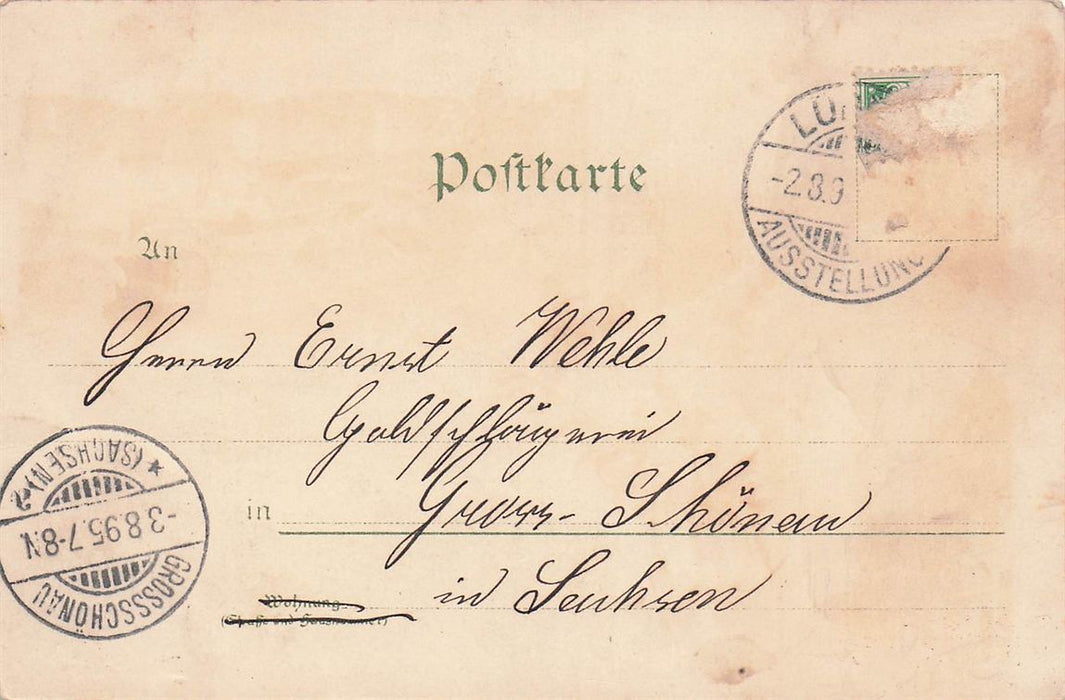 Postkarte
LÜ
-2.8.9
AUSSTELLUNG
An
Herrn Ernst Wehle
Goldschlägerei
in Gross-Schönau
in Sachsen
Wohnung
(Straße und Hausnummer)
GROSSSCHÖNAU
-3.8.95.7-8.N.
* (SACHSEN) 2